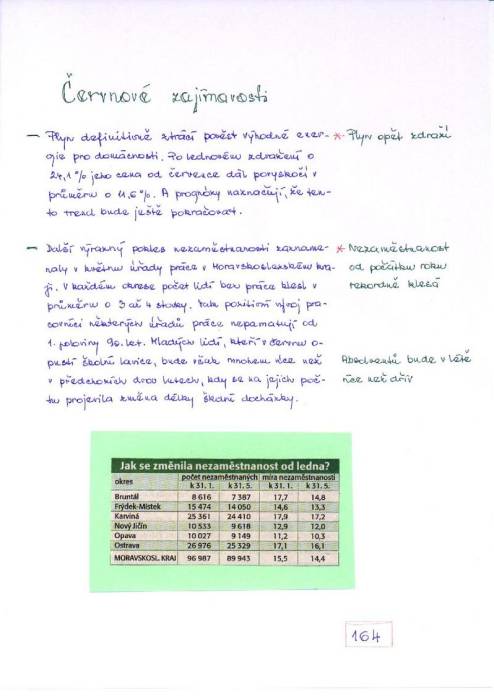 Červnové zajímavosti
— Plyn definitivně ztrácí pověst výhodné ener-
gie pro domácnosti. Po lednovém zdražení o
24,1 % jeho cena od července dál poryskočí v
průměru o 11,6 %. A prognózy naznačují, že ten-
to trend bude ještě pokračovat.
* Plyn opět zdraží
— Další výrazný pokles nezaměstnanosti zazname-
naly v květnu úřady práce v Moravskoslezském kra-
ji. V každém okrese počet lidí bez práce klesl v
průměru o 3 až 4 stovky. Tak pozitivní vývoj pra-
covníci některých úřadů práce nepamatují od
1. poloviny 90. let. Mladých lidí, kteří v červnu o-
pustí školní lavice, bude však mnohem více než
v předchozích dvou letech, kdy se na jejich poč-
tu projevila změna délky školní docházky.
* Nezaměstnanost
od počátku roku
rekordně klesá
Absolventů bude v létě
více než dřív
Jak se změnila nezaměstnanost od ledna?
okres počet nezaměstnaných míra nezaměstnanosti
k 31. 1. k 31. 5. k 31. 1. k 31. 5.
Bruntál 8 616 7 387 17,7 14,8
Frýdek-Místek 15 474 14 050 14,6 13,3
Karviná 25 361 24 410 17,9 17,2
Nový Jičín 10 533 9 618 12,9 12,0
Opava 10 027 9 149 11,2 10,3
Ostrava 26 976 25 329 17,1 16,1
MORAVSKOSL. KRAJ 96 987 89 943 15,5 14,4
164